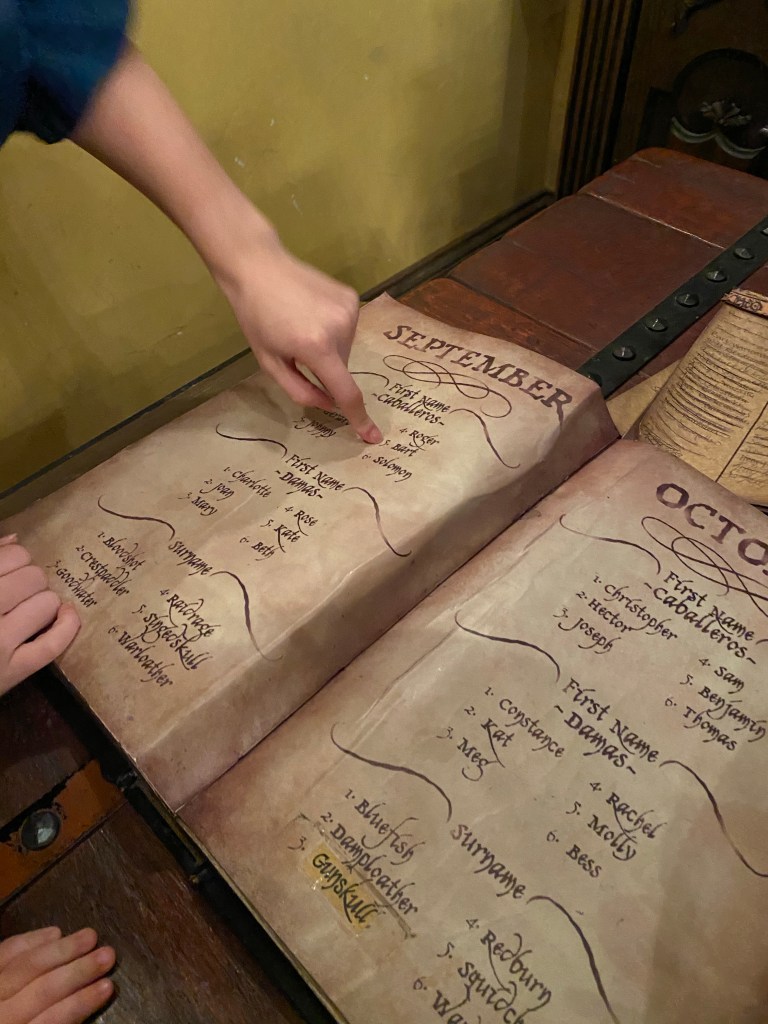 SEPTEMBER
First Name
~Caballeros~
Johnny
4. Roger
5. Bart
6. Solomon
First Name
~Damas~
1. Charlotte
2. Joan
3. Mary
4. Rose
5. Kate
6. Beth
Surname
1. Bloodshot
2. Crestpaddler
3. Goodwater
4. Raidrage
5. Singedskull
6. Warloather
OCTO
First Name
~Caballeros~
1. Christopher
2. Hector
3. Joseph
4. Sam
5. Benjamin
6. Thomas
First Name
~Damas~
1. Constance
2. Kat
3. Meg
4. Rachel
5. Molly
6. Bess
Surname
1. Bluefish
2. Damploather
3. Gunskull
4. Redburn
5. Squidch
6. Wa